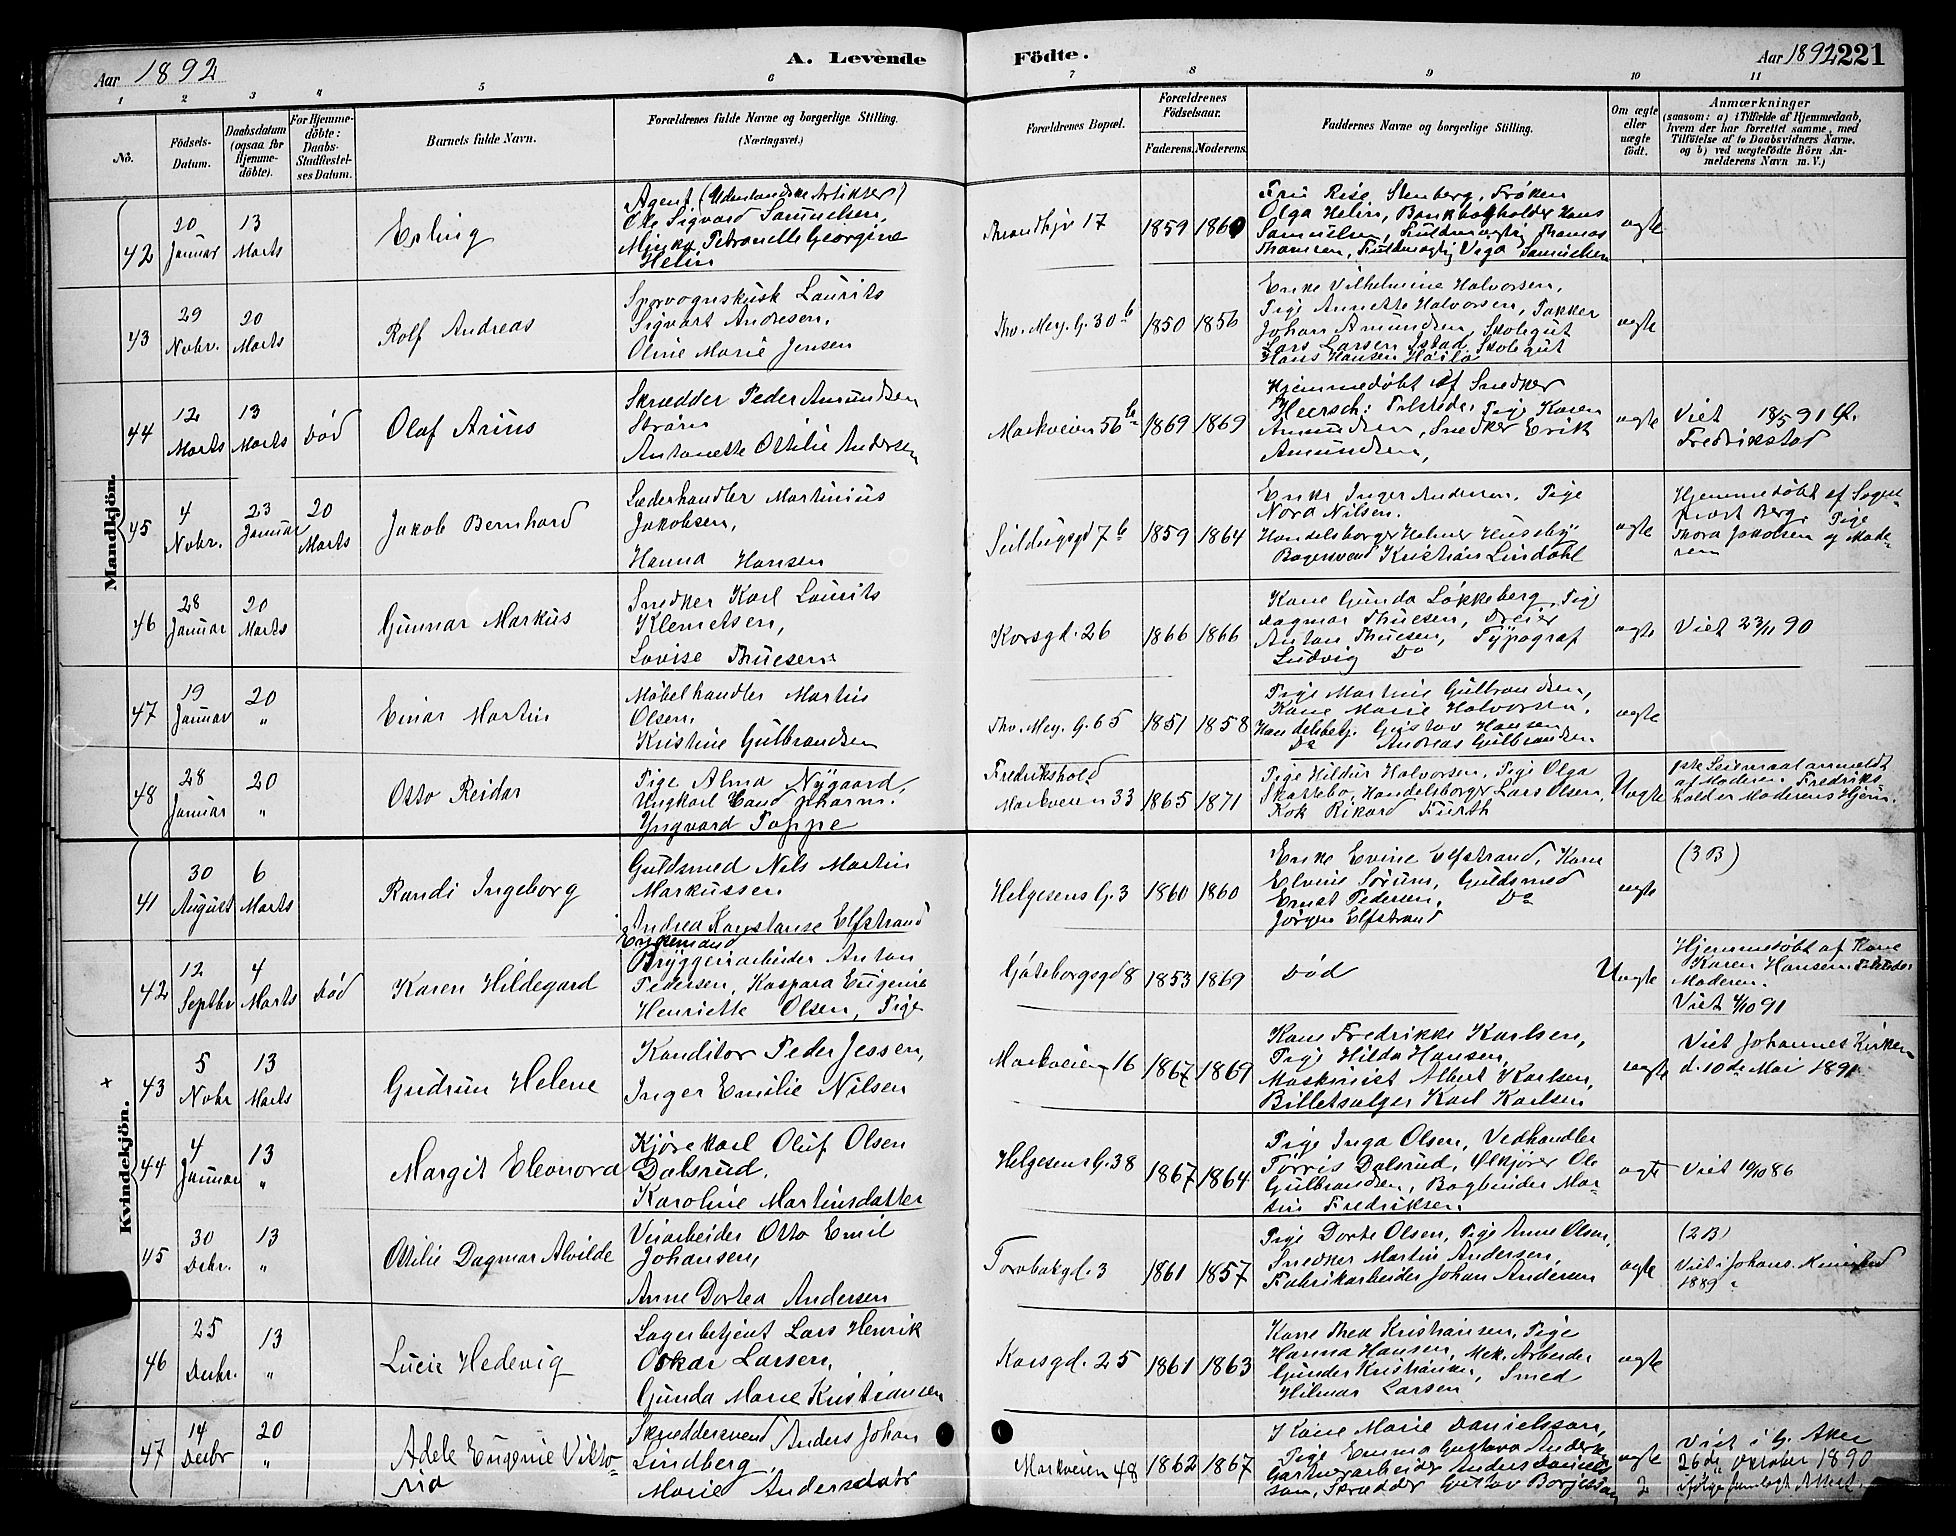 Aar 1892
A. Levende
Födte.
Aar 1892
221
1 2 3 4 5 6 7 8 9 10 11
No.
Födsels-
Datum.
Daabsdatum
(ogsaa for
Hjemme-
döbte).
For Hjemme-
döbte:
Daabs-
Stadfæstel-
ses Datum.
Barnets fulde Navn.
Forældrenes fulde Navne og borgerlige Stilling.
(Næringsvei.)
Forældrenes Bopæl.
Forældrenes
Födselsaar.
Faderens. Moderens.
Faddernes Navne og borgerlige Stilling.
Om ægte
eller
uægte
födt.
Anmærkninger
(saasom: a) i Tilfælde af Hjemmedaab,
hvem der har forrettet samme, med
Tilföielse af to Daabsvidners Navne,
og b) ved uægtefödte Börn An-
melderens Navn m. V.)
Mandkjön.
42
20 Januar
13 Marts
Erling
Agent (Udenlandske Artikler)
Ole Sigvard Samuelsen,
Petronelle Georgine
Helin
17
1859 1860
Fru Stenberg, Frøken
Olga Helin, Bankbogholder Hans
Samuelsen, Fuldmægtig Thomas
Fuldmægtig Samuelsen
ægte
43
29 Nobr.
20 Marts
Rolf Andreas
Sporvognskusk Laurits
Sigvart Andresen,
Oline Marie Jensen
Thv. Mey. G. 30 b
1850 1856
Enke Vilhelmine Halvorsen,
Pige Annette Halvorsen, Pakker
Johan Amundsen, Skolegut
Lars Larsen Skolegut
Hans Hansen
ægte
44
12 Marts
13 Marts
Død
Olaf Arius
Skrædder Peder Amundsen
Strøm
Antonette Ottilie Andersen
Markveien 56 b
1869 1869
Hjemmedøbt af Snedker
Heersch: Tilstede, Pige Karen
Amundsen, Snedker Erik
Amundsen,
ægte
Viet 18/5 91 Ø.
Fredrikstad
45
4 Nobr.
23 Januar
20 Marts
Jakob Bernhard
Læderhandler Martinius
Jakobsen,
Hanna Hansen
Seildugsgd 7 b
1859 1864
Enke Inger Andersen, Pige
Nora Nilsen.
Handelsborger Helmer Huseby
Bagersvend Kristian Lindahl
ægte
Hjemmedøbt af Sogne-
prest Berg, Pige
Thora Jakobsen og Mode-
ren
46
28 Januar
20 Marts
Gunnar Markus
Snedker Karl Laurits
Klemetsen,
Lovise Thuesen
Korsgd. 26
1866 1866
Kone Gunda Løkkeberg, Pige
Dagmar Thuesen, Dreier
Anton Thuesen, Typograf
Ludvig Do
ægte
Viet 23/11 90
47
19 Januar
20 "
Einar Martin
Møbelhandler Martin
Olsen,
Kristine Gulbrandsen
Thv. Mey. G. 65
1851 1858
Pige Martine Gulbrandsen,
Kone Marie Halvorsen,
Handelsbetj. Gustav Hansen
Do Andreas Gulbrandsen
ægte
48
28 Januar
20 "
Otto Reidar
Pige Alma Nygaard,
Ungkarl Cand. pharm.
Yngvard Poppe
Fredrikshald
Markveien 33
1865 1871
Pige Hildur Halvorsen, Pige Olga
Skattebo, Handelsborger Lars Olsen,
Kok Rikard Furth
Uægte
1ste Leiermaal anmeldt
af Moderen. Fredriks
hald er Moderens Hjem.
Kvindekjön.
41
30 August
6 Marts
Randi Ingeborg
Guldsmed Nils Martin
Markussen
Andrea Konstanse Elfstrand
Helgesens G. 3
1860 1860
Enke Evine Elfstrand, Kone
Elvine Sørum, Guldsmed
Ernst Pedersen, Do
Jørgen Elfstrand
ægte
(3 B)
42
12 Septbr
4 Marts
Død
Karen Hildegard
Enkemand
Bryggeriarbeider Anton
Pedersen, Kaspara Eugenie
Henriette Olsen, Pige
Gøteborgsgd 8
1853 1869
Død
Uægte
Hjemmedøbt af Kone
Karen Hansen Tilstede
Moderen.
Viet 4/10 91
×
43
5 Nobr
13 Marts
Gudrun Helene
Konditor Peder Jessen,
Inger Emilie Nilsen
Markveien 16
1867 1869
Kone Fredrikke Karlsen,
Pige Hilda Hansen,
Maskinist Albert Karlsen,
Billetsælger Karl Karlsen
uægte
Viet Johannes Kirken
d. 10de Mai 1891
44
4 Januar
13 "
Margit Eleonora
Kjørekarl Oluf Olsen
Dalsrud,
Karoline Martinsdatter
Helgesens G. 38
1867 1864
Pige Inga Olsen, Vedhandler
Tørris Dalsrud, Ølkjører Ole
Gulbrandsen, Bogbinder Mar-
tin Fredriksen.
ægte
Viet 10/10 86
45
30 Debr.
13 "
Ottilie Dagmar Alvilde
Veiarbeider Otto Emil
Johansen,
Anne Dortea Andersen
Torvbakgd. 3
1861 1857
Pige Dorte Olsen, Pige Anne Olsen,
Snedker Martin Andersen,
Fabrikarbeider Johan Andersen
ægte
(2 B)
Viet i Johans.
1889
46
25 Decbr.
13 "
Lucie Hedevig
Lagerbetjent Lars Henrik
Oskar Larsen,
Gunda Marie Kristiansen
Korsgd. 25
1861 1863
Kone Thea Kristiansen, Pige
Hanna Hansen, Mek. Arbeider
Gunder Kristiansen, Smed
Hilmar Larsen
ægte
47
14 Decbr
20 "
Adele Eugenie Vikto-
ria
Skræddersvend Anders Johan
Lindberg,
Marie Andersdatr
Markveien 48
1862 1867
Kone Marie Danielsson,
Pige Emma Gustava Anders
Gartnerarbeider Anders Daniels
son, Skrædder Gustav Borjesson
ægte
2
Viet i G. Aker
26de Oktober 1890
ifølge fremlagt Attest.